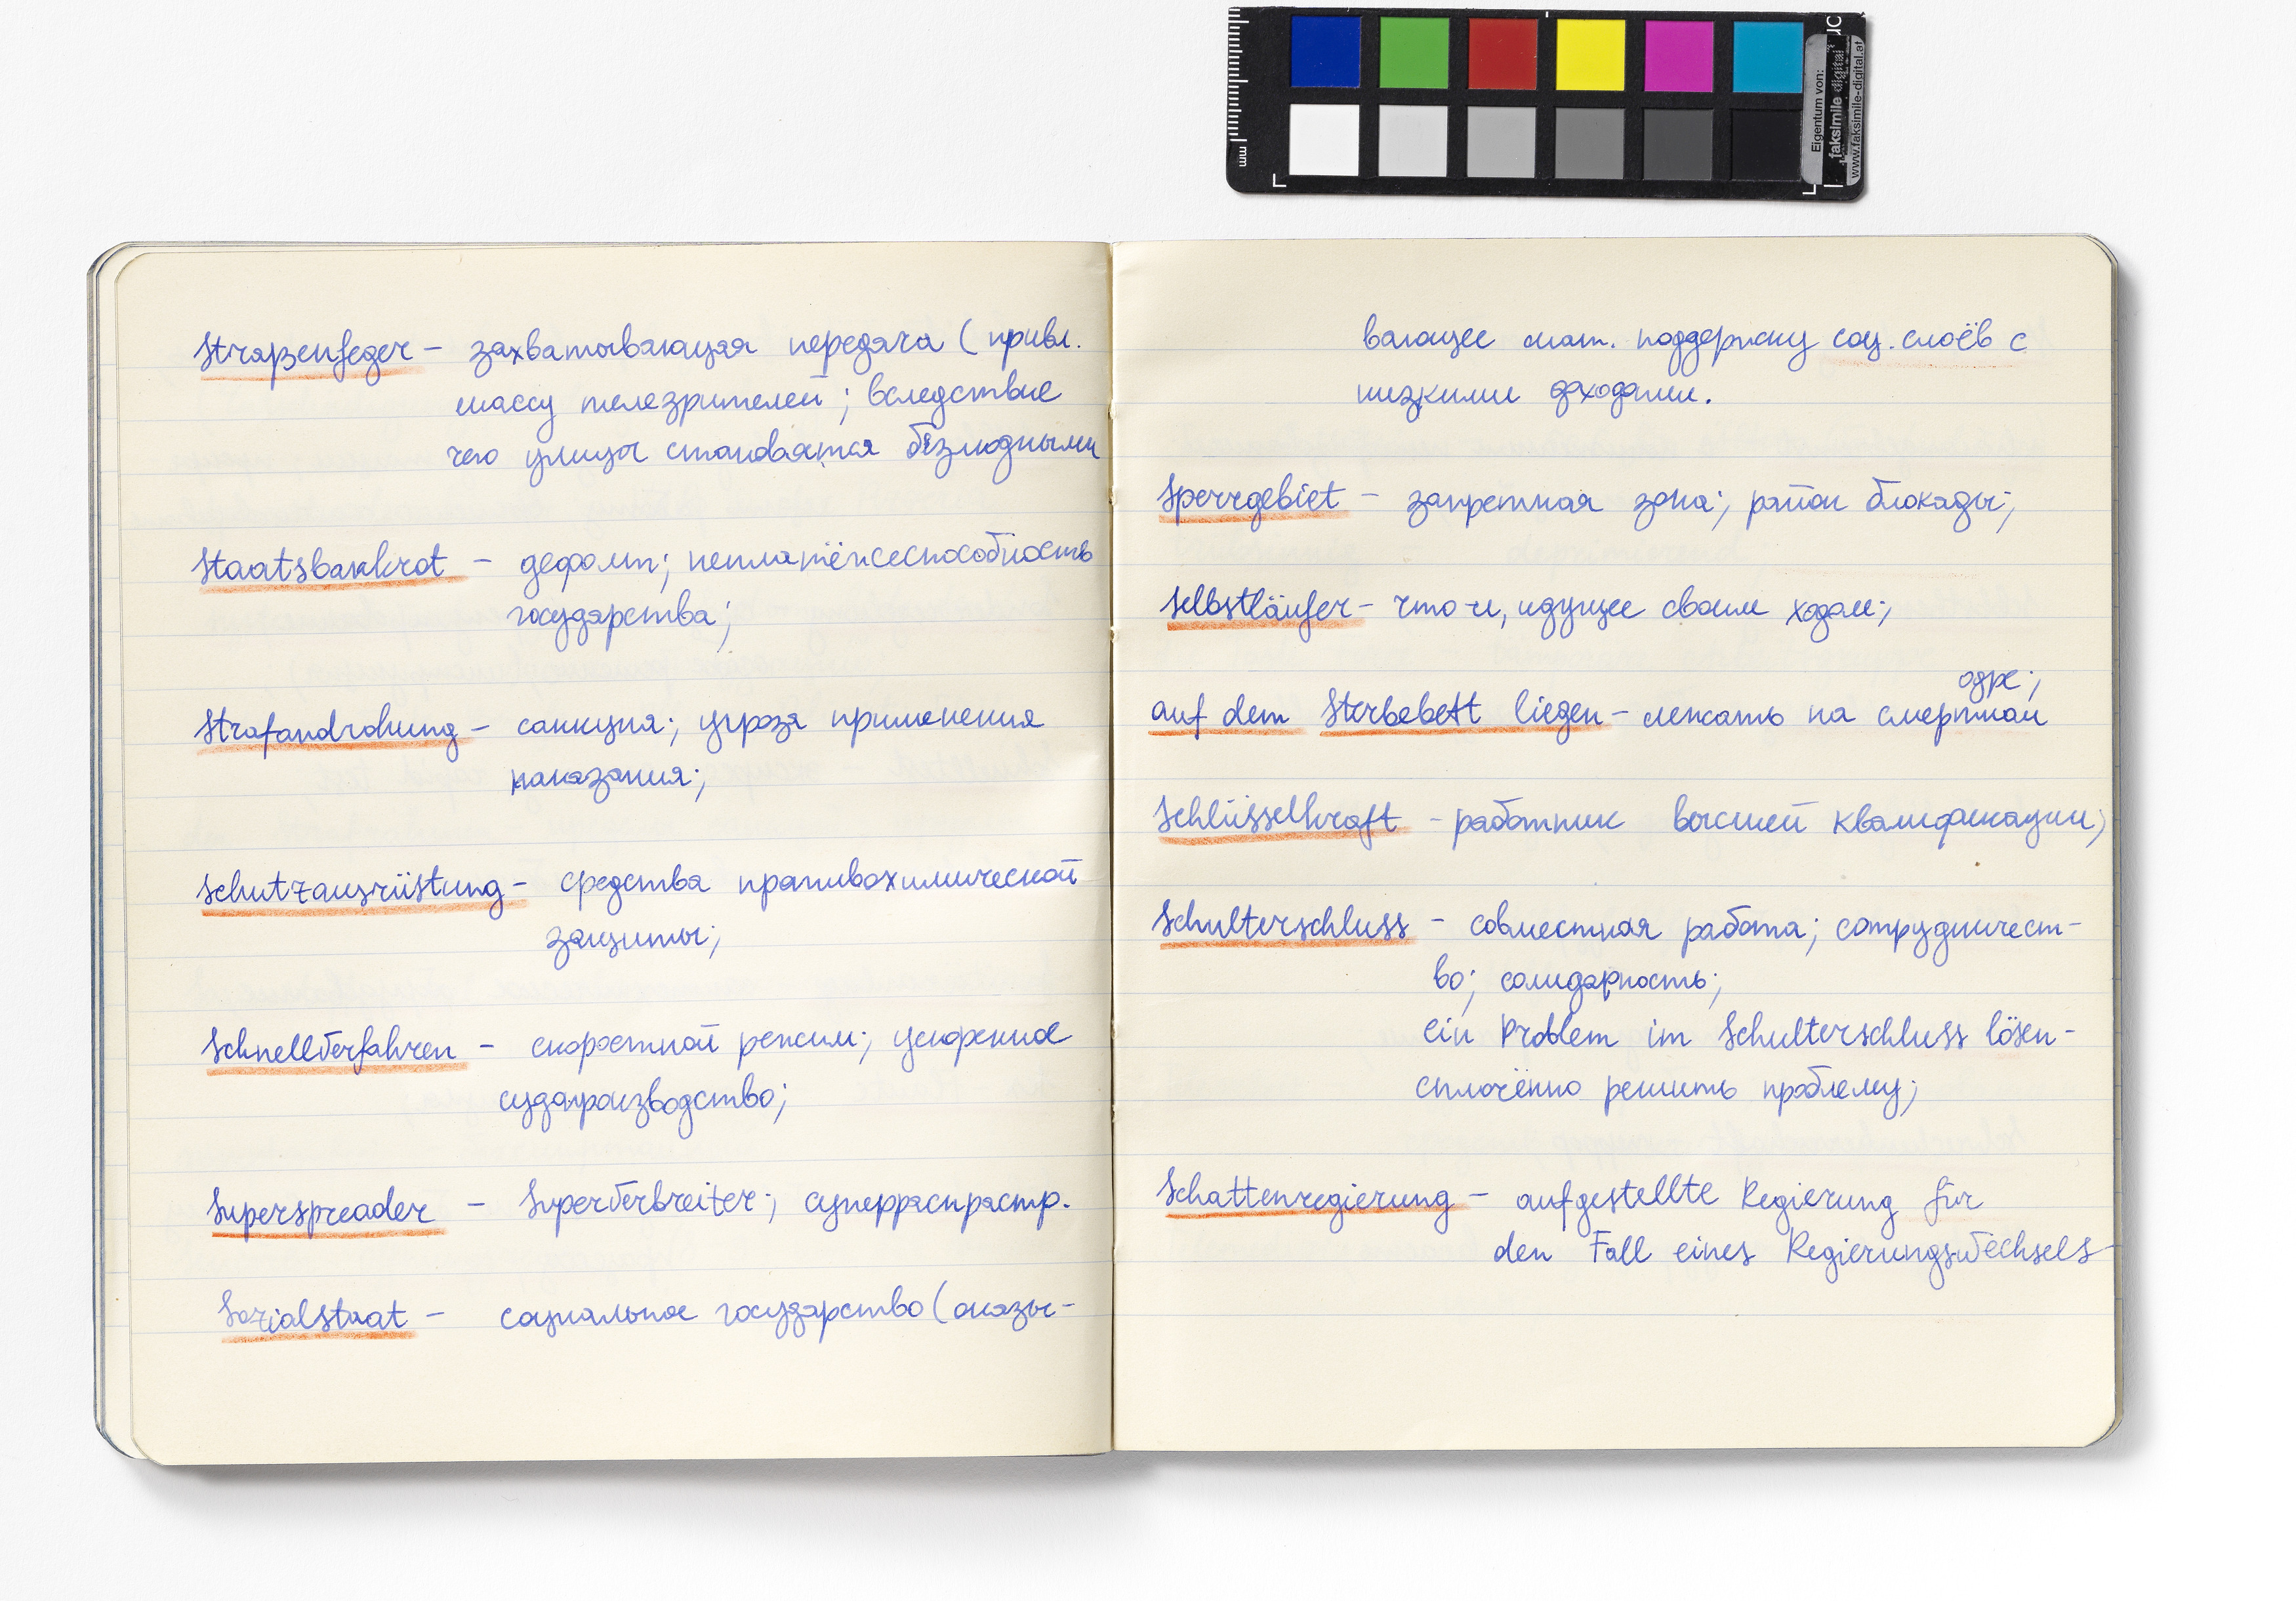 mm
Eigentum von:
faksimile digital
www.faksimile-digital.at
Straßenfeger – захватывающая передача (привл.
массу телезрителей; вследствие
чего улицы становятся безлюдными
Staatsbankrot – дефолт; неплатёжеспособность
государства;
Strafandrohung – санкция; угроза применения
наказания;
Schutzausrüstung – средства противохимической
защиты;
Schnellverfahren – скоростной режим; ускоренное
судопроизводство;
Superspreader – Superverbreiter; суперраспростр.
Sozialstaat – социальное государство (оказы-
вающее мат. поддержку соц. слоёв с
низкими доходами.
Sperrgebiet – запретная зона; район блокады;
Selbstläufer – что-н, идущее своим ходом;
одре;
auf dem Sterbebett liegen – лежать на смертном
Schlüsselkraft – работник высшей квалификации;
Schulterschluss – совместная работа; сотрудничест-
во; солидарность;
ein Problem im Schulterschluss lösen –
сплочённо решить проблему;
Schattenregierung – aufgestellte Regierung für
den Fall eines Regierungswechsels –